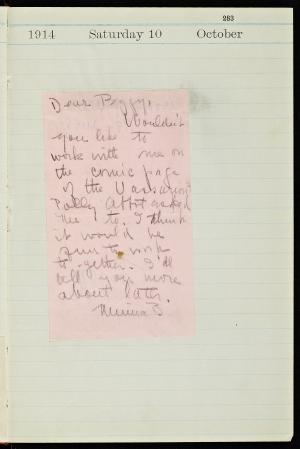 283
1914 Saturday 10 October
Dear Peggy,
Wouldn't
you like to
work with me on
the comic page
of the Vassarion?
Polly Abbot asked
me to. I think
it would be
fun to work
to-gether. I'll
tell you more
about later.